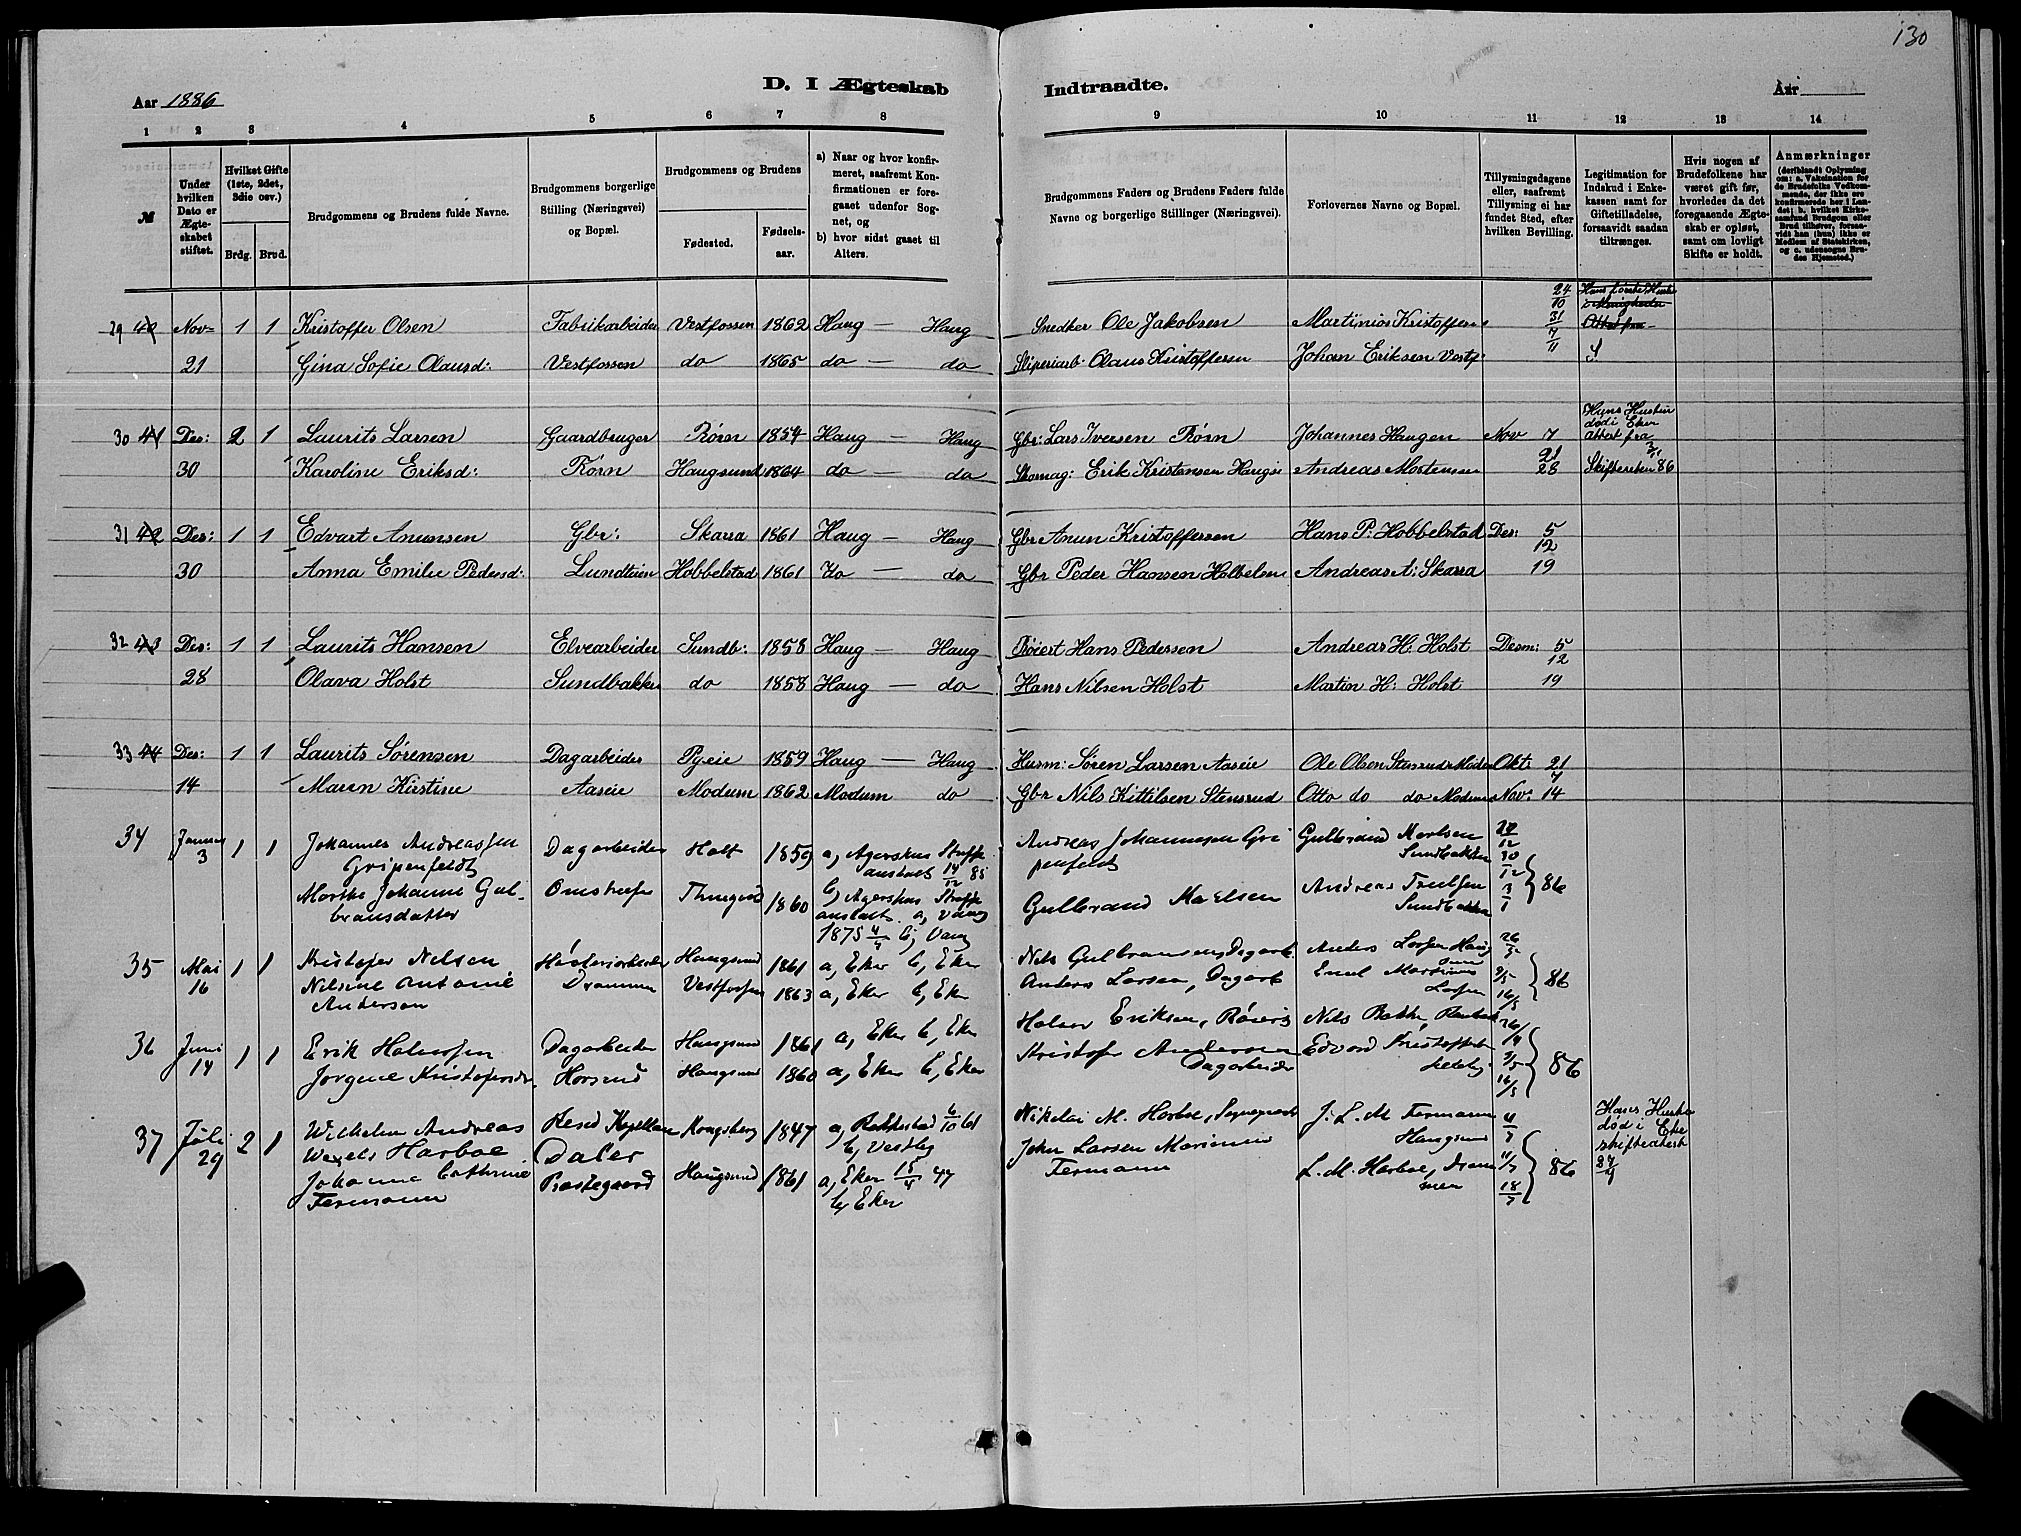 130
D. I Ægteskab Indtraadte.
Aar 1886
Aar
1 2 3 4 5 6 7 8 9 10 11 12 13 14
№
Under hvilken Dato er Ægteskabet stiftet.
Hvilket Gifte (1ste, 2det, 3die osv.)
Brdg. Brud.
Brudgommens og Brudens fulde Navne.
Brudgommens borgerlige Stilling (Næringsvei) og Bopæl.
Brudgommens og Brudens
Fødested. Fødselsaar.
a) Naar og hvor konfirmeret, saafremt Konfirmationen er foregaaet udenfor Sognet, og
b) hvor sidst gaaet til Alters.
Brudgommens Faders og Brudens Faders fulde Navne og borgerlige Stillinger (Næringsvei).
Forlovernes Navne og Bopæl.
Tillysningsdagene eller, saafremt Tillysning ei har fundet Sted, efter hvilken Bevilling.
Legitimation for Indskud i Enkekassen samt for Giftetilladelse, forsaavidt saadan tiltrænges.
Hvis nogen af Brudefolkene har været gift før, hvorledes da det foregaaende Ægteskab er opløst, samt om lovligt Skifte er holdt.
Anmærkninger (deriblandt Oplysning om: a. Vaksination for de Brudefolks Vedkommende, der ikke ere konfirmerede her i Landet; b. hvilket Kirkesamfund Brudgom eller Brud tilhører, forsaavidt han (hun) ikke er Medlem af Statskirken, og c. udensogns Brudes Hjemsted.)
29 Nov 1 1 Kristoffer Olsen Fabrikarbeider Vestfossen 1862 Haug — Haug Snedker Ole Jakobsen Martinius Kristoffers 24/10 31 7/11
21 Gina Sofie Olausd: Vestfossen do 1865 do — do Sliperiarb. Olaus Kristoffersen Johan Eriksen Vestf
30 Des: 2 1 Laurits Larsen Gaardbruger Rørn 1854 Haug — Haug Gbr: Lars Iversen Rørn Johannes Haugen Nov 7 Hans Hustru død i Eker attest fra
30 Karoline Eriksd: Rørn Haugsund 1864 do — do Skomag: Erik Kristensen Andreas Mortensen 21 28 Skifteretten 86
31 Des: 1 1 Edvart Anunsen Gbr: Skarra 1861 Haug — Haug Gbr Anun Kristoffersen Hans P: Hobbelstad Des: 5 12
30 Anna Emilie Pedersd: Hobbelstad 1861 do — do Gbr Peder Hansen Andreas A: Skarra 19
32 Des: 1 1 Laurits Hansen Elvearbeider Sundb: 1858 Haug — Haug Røiert Hans Pedersen Andreas H: Holst Desm: 5 12
28 Olava Holst Sundbakken do 1858 Haug — do Hans Nilsen Holst Martin H: Holst 19
33 Des: 1 1 Laurits Sørensen Dagarbeider 1859 Haug — Haug Husm: Søren Larsen Aaseie Ole Olsen Modum Okt: 21 7
14 Maren Kirstine Aaseie Modum 1862 Modum do Gbr Nils Kittilsen Stensrud Otto do do Modum Nov: 14
34 Januar 3 1 1 Johannes Andreassen Dagarbeider Holt 1859 a, Agershus Straffe Andreas Johannesen Gri Gulbrand
Gripenfeldt anstalt 14/12 85 penfeldt Sundbakken 30/12
Marthe Johanne Gul- 1860 b, Agershus Straffe Gulbrand Andreas Truelsen 3/1 86
bransdatter anstalt. a, Vang Sundbakken
1875 4/7 b, Vang
35 Mai 16 1 1 Kristofer Nilsen Haugsund 1861 a, Eker b, Eker Nils Gulbransen, Dagarb. Anders Larsen Haug
Nilsine Antonie Drammen Vestfossen 1863 a, Eker b, Eker Anders Larsen, Dagarb Emil 9/5 86
Andersen Larsen 16/5
36 Juni 14 1 1 Erik Halvorsen Dagarbeider Haugsund 1861 a, Eker b, Eker Halvor Eriksen, Nils
Jørgine Kristofersdr. Haugsund 1860 a, Eker b, Eker Kristofer Andersen Edvard Kristoffersen 9/5 86
Dagarbeider 16/5
37 Juli 29 2 1 Wilhelm Andreas Resid Kapellan Kongsberg 1847 a, Rakkestad 6/10 61 Nikolai M. Harboe, Sogneprest J. L. M. Fermann 4/7 Hans Hustru
Wexels Harboe b, Vestby Haugsund død i Eker
Johanne Cathrine Præstegaard Haugsund 1861 a, Eker 15/4 77 John Larsen Marinus L. M. Harboe, Dram 11/7 86 skifteattest
Fermann b, Eker Fermann men 18/7